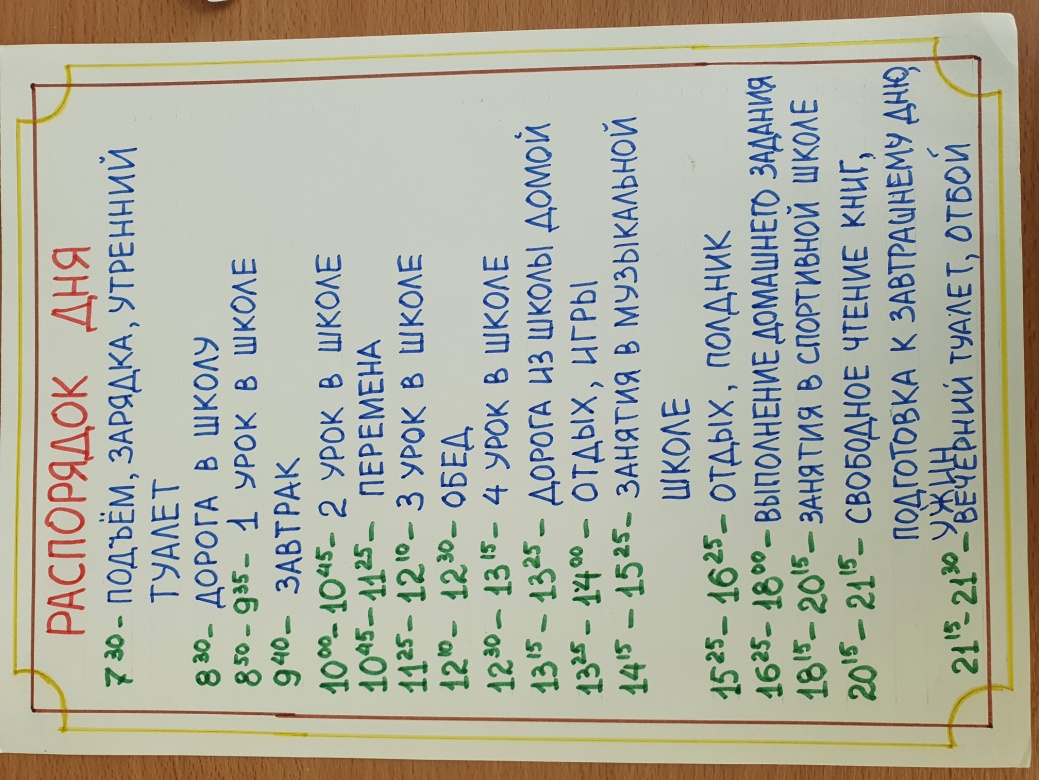 РАСПОРЯДОК ДНЯ
7 30 – ПОДЪЁМ, ЗАРЯДКА, УТРЕННИЙ
ТУАЛЕТ
8 30 – ДОРОГА В ШКОЛУ
8 50 – 9 35 – 1 УРОК В ШКОЛЕ
9 40 – ЗАВТРАК
10 00 – 10 45 – 2 УРОК В ШКОЛЕ
10 45 – 11 25 – ПЕРЕМЕНА
11 25 – 12 10 – 3 УРОК В ШКОЛЕ
12 10 – 12 30 – ОБЕД
12 30 – 13 15 – 4 УРОК В ШКОЛЕ
13 15 – 13 25 – ДОРОГА ИЗ ШКОЛЫ ДОМОЙ
13 25 – 14 00 – ОТДЫХ, ИГРЫ
14 15 – 15 25 – ЗАНЯТИЯ В МУЗЫКАЛЬНОЙ
ШКОЛЕ
15 25 – 16 25 – ОТДЫХ, ПОЛДНИК
16 25 – 18 00 – ВЫПОЛНЕНИЕ ДОМАШНЕГО ЗАДАНИЯ
18 15 – 20 15 – ЗАНЯТИЯ В СПОРТИВНОЙ ШКОЛЕ
20 15 – 21 15 – СВОБОДНОЕ ЧТЕНИЕ КНИГ,
ПОДГОТОВКА К ЗАВТРАШНЕМУ ДНЮ,
УЖИН
21 15 – 21 30 – ВЕЧЕРНИЙ ТУАЛЕТ, ОТБОЙ